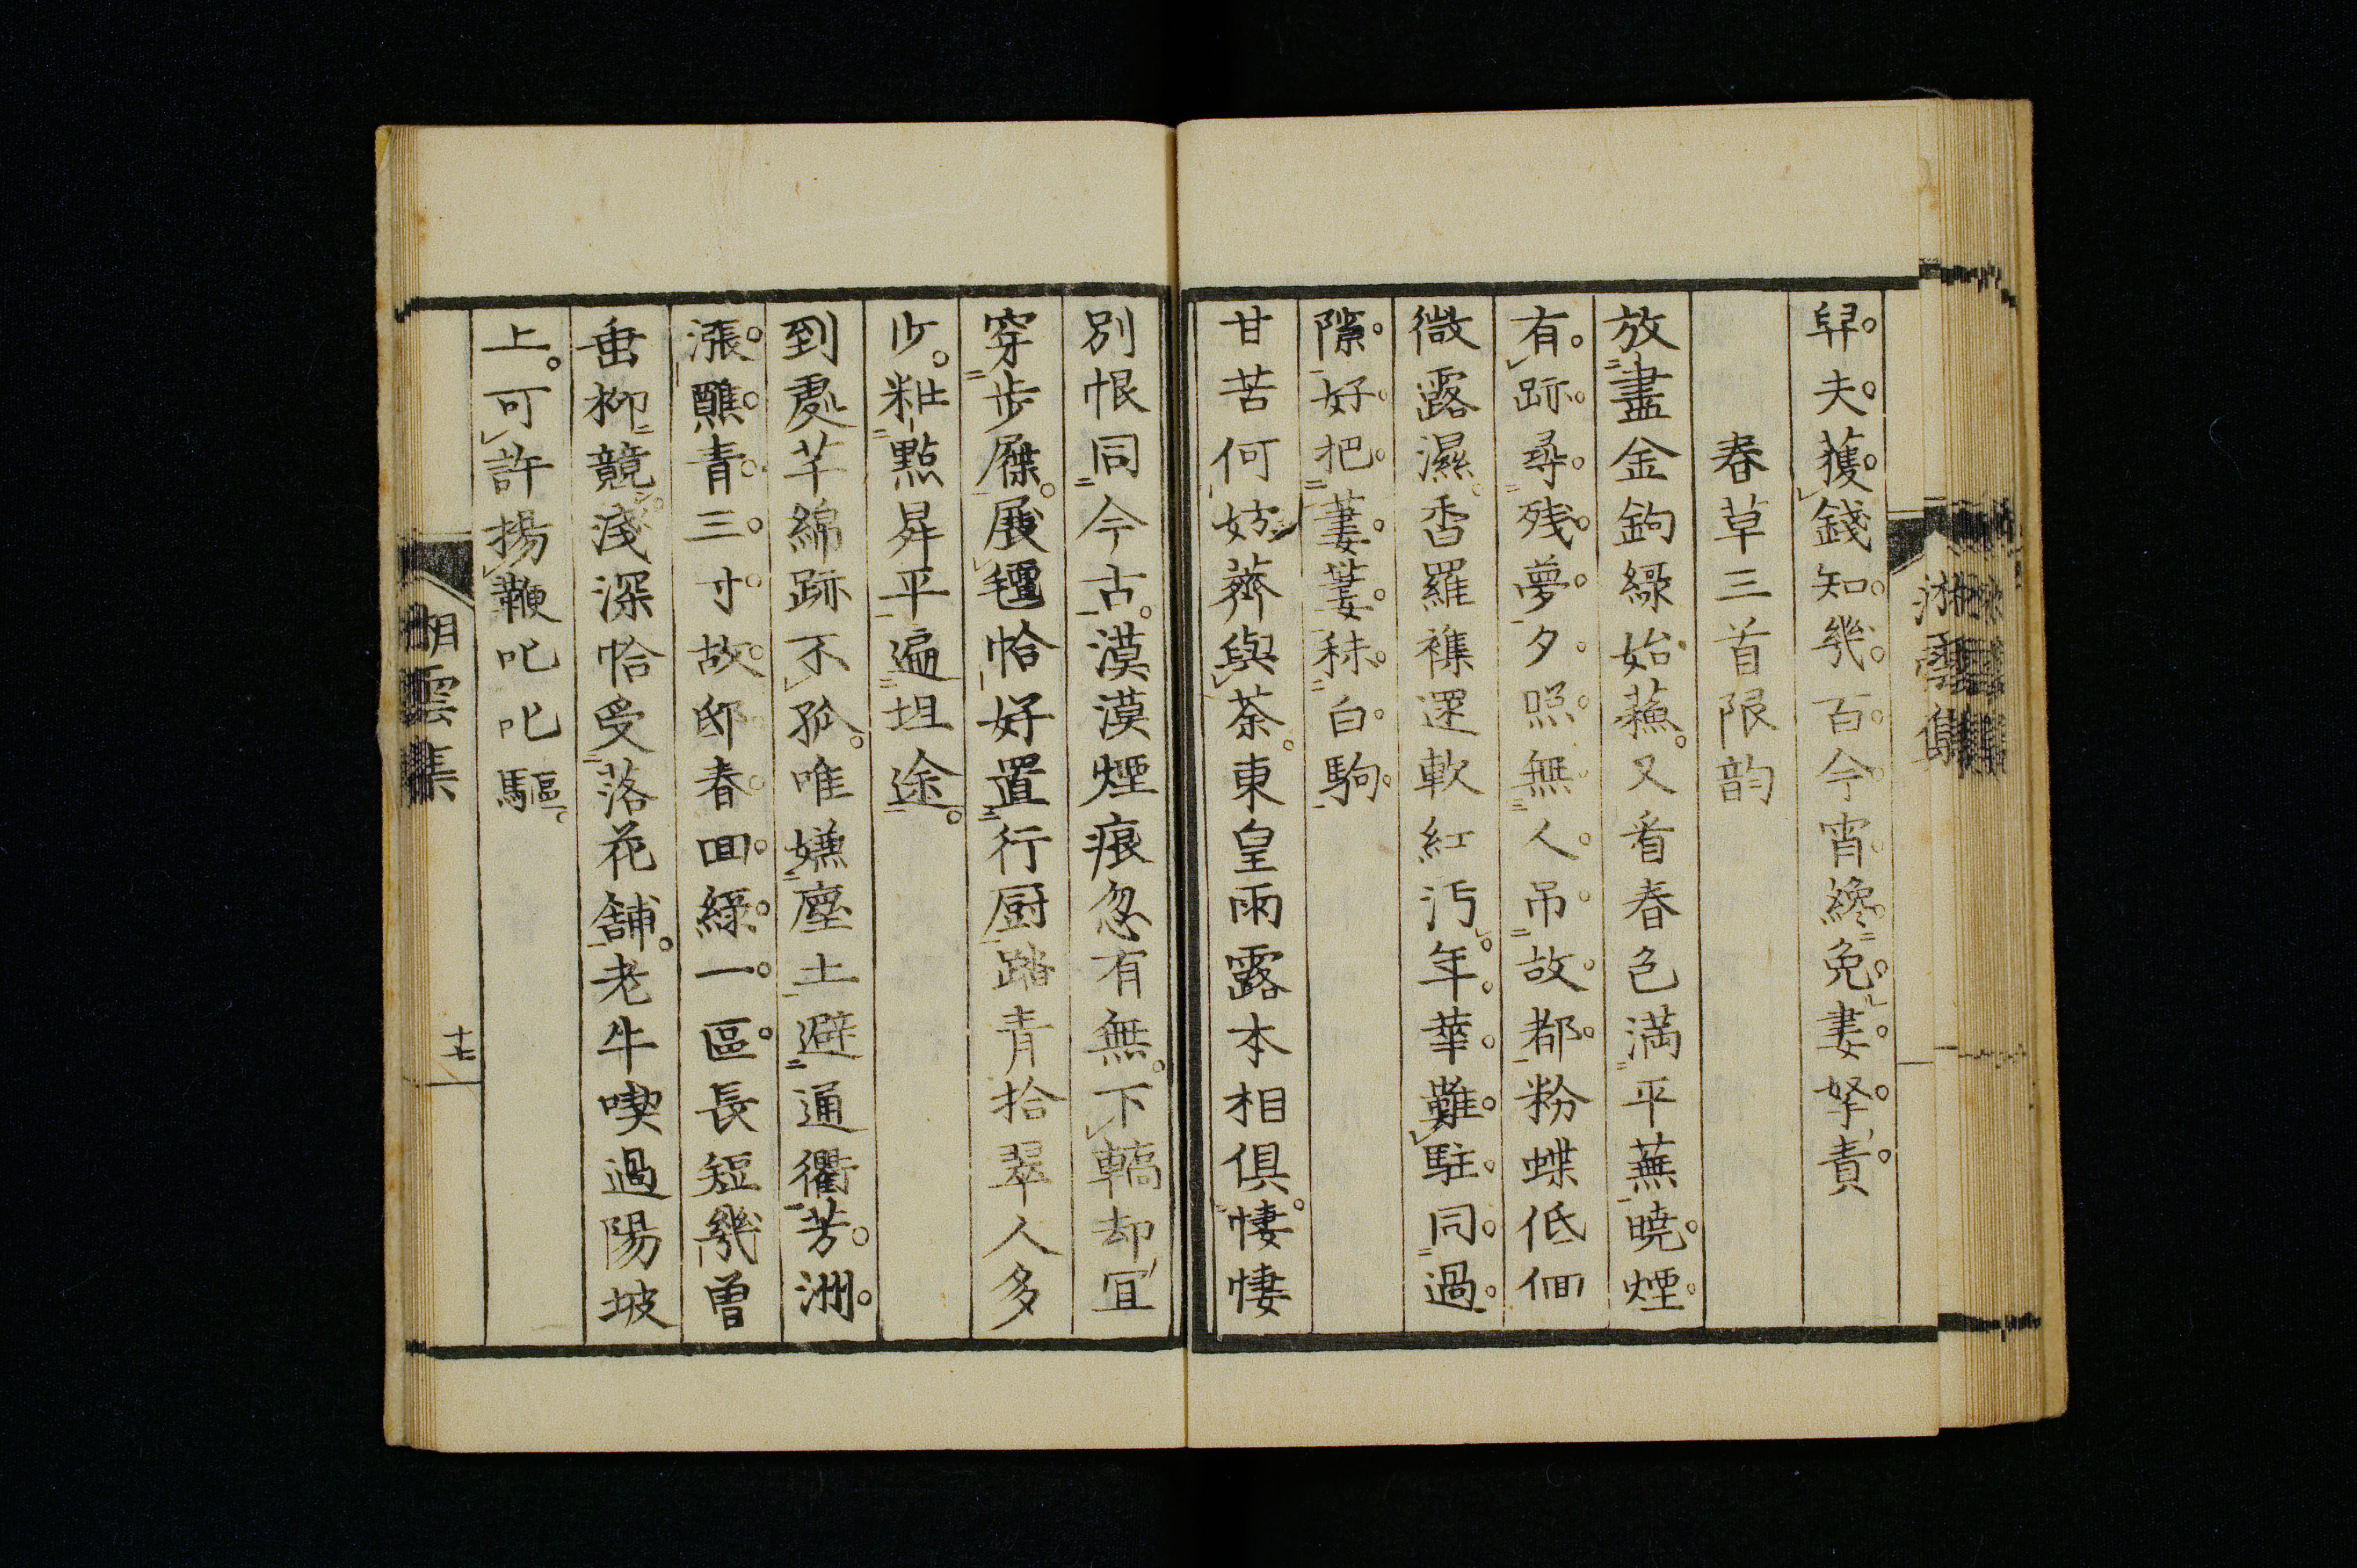 舁夫獲錢知幾百今宵纔免妻孥責
春草三首限韵
放盡金鉤緑始蘓又看春色満平蕪曉煙
有跡尋残夢夕照無人吊故都粉蝶低佪
微露濕香羅襍遝軟紅汚年華難駐同過
隙好把萋萋秣白駒
甘苦何妨薺與荼東皇雨露本相俱悽悽
別恨同今古漠漠煙痕忽有無下轎却冝
穿歩屧展氊恰好置行厨踏青拾翠人多
少粧點昇平遍坦途
到處芊綿跡不孤唯嫌塵土避通衢芳洲
漲醮青三寸故邸春囬緑一區長短幾曽
垂柳競淺深恰受落花舗老牛喫過陽坡
上可許揚鞭叱叱驅
湖雲集
十七